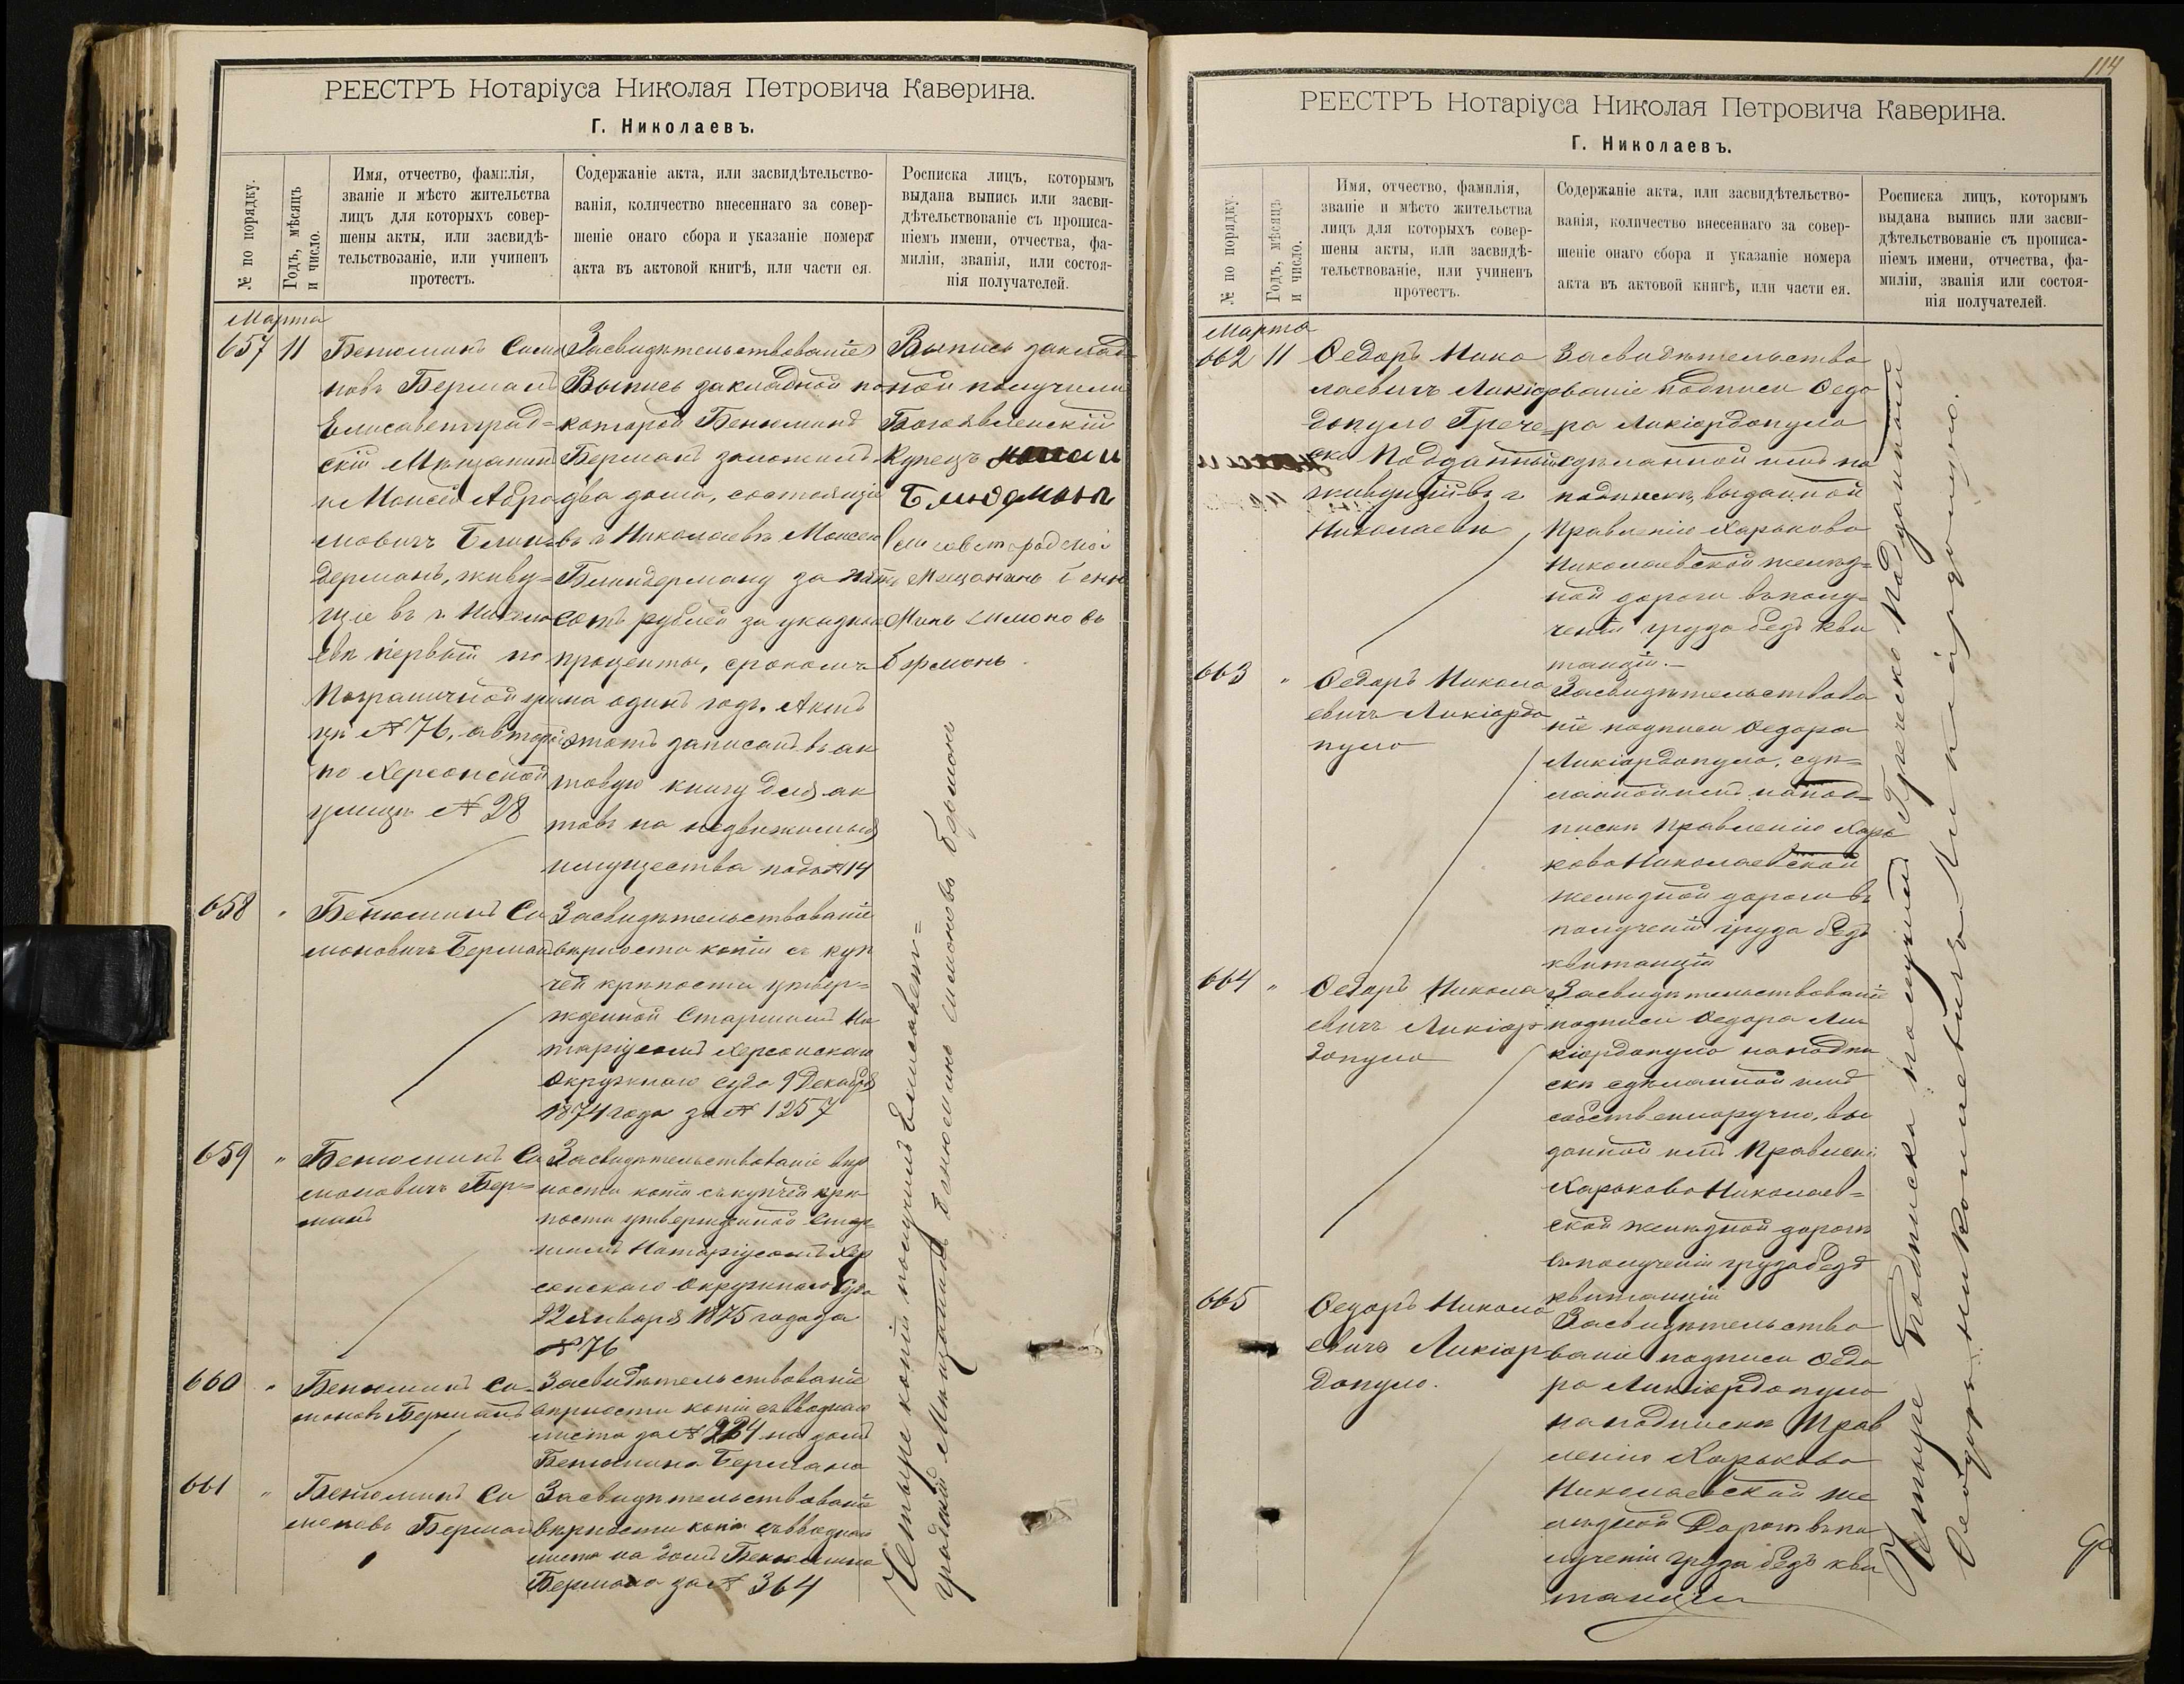 РЕЕСТРЪ Нотаріуса Николая Петровича Каверина.
Г. Николаевъ.
№ по порядку.
Годъ, мѣсяцъ
и число.
Имя, отчество, фамилія,
званіе и мѣсто жительства
лицъ для которыхъ совер-
шены акты, или засвидѣ-
тельствованіе, или учиненъ
протестъ.
Содержаніе акта, или засвидѣтельство-
ванія, количество внесеннаго за совер-
шеніе онаго сбора и указаніе номера
акта въ актовой книгѣ, или части ея.
Росписка лицъ, которымъ
выдана выпись или засви-
дѣтельствованіе съ прописа-
ніемъ имени, отчества, фа-
миліи, званія, или состоя-
нія получателей.
Марта
657 11
Бенюминъ Симо
новъ Берманъ
Елисаветград=
скій Мѣщанинъ
и Моисей Абра
мовичъ Блин
дерманъ, живу=
щіе въ г. Никола
евѣ первый по
Пограничной ули
цѣ № 76, а второй
по Херсонской
улицѣ № 28
(Засвидѣтельствованіе)
Выпись закладной по
которой Бенюминъ
Берманъ заложилъ
два дома, состоящіе
въ г. Николаевѣ Моисею
Блиндерману за пять
сотъ рублей за указные
проценты, срокомъ
на одинъ годъ. Актъ
этотъ записанъ въ ак
товую книгу для ак
товъ на недвижимыя
имущества подъ № 14
Выпись заклад=
ной получили
Богоявленскій
Купецъ
Елисаветградскій
Мещанинъ Беню
минъ Симоновъ
Берманъ.
658 "
Бенюминъ Си
моновичъ Берманъ
Засвидѣтельствованіе
вѣрности копіи съ куп
чей крѣпости утвер=
жденной Старшимъ Но
таріусомъ Херсонскаго
Окружнаго Суда 9 Декабря
1874 года за № 1257
659 "
Бенюминъ Си
моновичъ Бер=
манъ
Засвидѣтельствованіе вѣр
ности копіи съ купчей крѣ
пости утвержденной Стар
шимъ Нотаріусомъ Хер
сонскаго Окружнаго Суда
22 Января 1875 года за
№ 76
660 "
Бенюминъ Си=
моновъ Берманъ
Засвидѣтельствованіе
вѣрности копіи съ вводнаго
листа за № 224 на домъ
Бенюмина Бермана
661 "
Бенюминъ Си
моновъ Берман
Засвидѣтельствованіе
вѣрности копіи съ вводнаго
листа на домъ Бенюмина
Бермана за № 364
Четыре копіи получилъ Елисавет=
градскій Мѣщанинъ Бенюминъ Симоновъ Берманъ
114
РЕЕСТРЪ Нотаріуса Николая Петровича Каверина.
Г. Николаевъ.
№ по порядку.
Годъ, мѣсяцъ
и число.
Имя, отчество, фамилія,
званіе и мѣсто жительства
лицъ для которыхъ совер-
шены акты, или засвидѣ-
тельствованіе, или учиненъ
протестъ.
Содержаніе акта, или засвидѣтельство-
ванія, количество внесеннаго за совер-
шеніе онаго сбора и указаніе номера
акта въ актовой книгѣ, или части ея.
Росписка лицъ, которымъ
выдана выпись или засви-
дѣтельствованіе съ прописа-
ніемъ имени, отчества, фа-
миліи, званія или состоя-
нія получателей.
Марта
662 11
Ѳедоръ Нико
лаевичъ Ликіар
допуло Грече=
ско Подданный
живущій въ г.
Николаевѣ
Засвидѣтельство
ваніе подписи Ѳедо
ра Ликіардопуло
сдѣланной имъ на
подпискѣ, выданной
Правленію Харьково
Николаевской желѣз=
ной дороги въ полу=
ченіи груза безъ кви
танціи.—
663 "
Ѳедоръ Никола
евичъ Ликіардо
пуло
Засвидѣтельствова
ніе подписи Ѳедора
Ликіардопуло, сдѣ=
ланной имъ на под=
пискѣ Правленію Харь
ково Николаевской
желѣзной дороги въ
полученіи груза безъ
квитанціи
664 "
Ѳедоръ Никола
евичъ Ликіар
допуло
Засвидѣтельствованіе
подписи Ѳедора Ли
кіардопуло на подпи
скѣ сдѣланной имъ
собственноручно, вы
данной имъ Правлені
Харьково Николаев=
ской желѣзной дороги
въ полученіи груза безъ
квитанціи
665
Ѳедоръ Никола
евичъ Ликіар
допуло.
Засвидѣтельство
ваніе подписи Ѳедо
ра Ликіардопуло
на подпискѣ Прав
ленію Харьково
Николаевской же
лѣзной Дороги въ по
лученіи груза безъ кви
танціи
Четыре Подписки получилъ Греческо Подданный
Ѳеодоръ Николаевичъ Ликіардопуло.